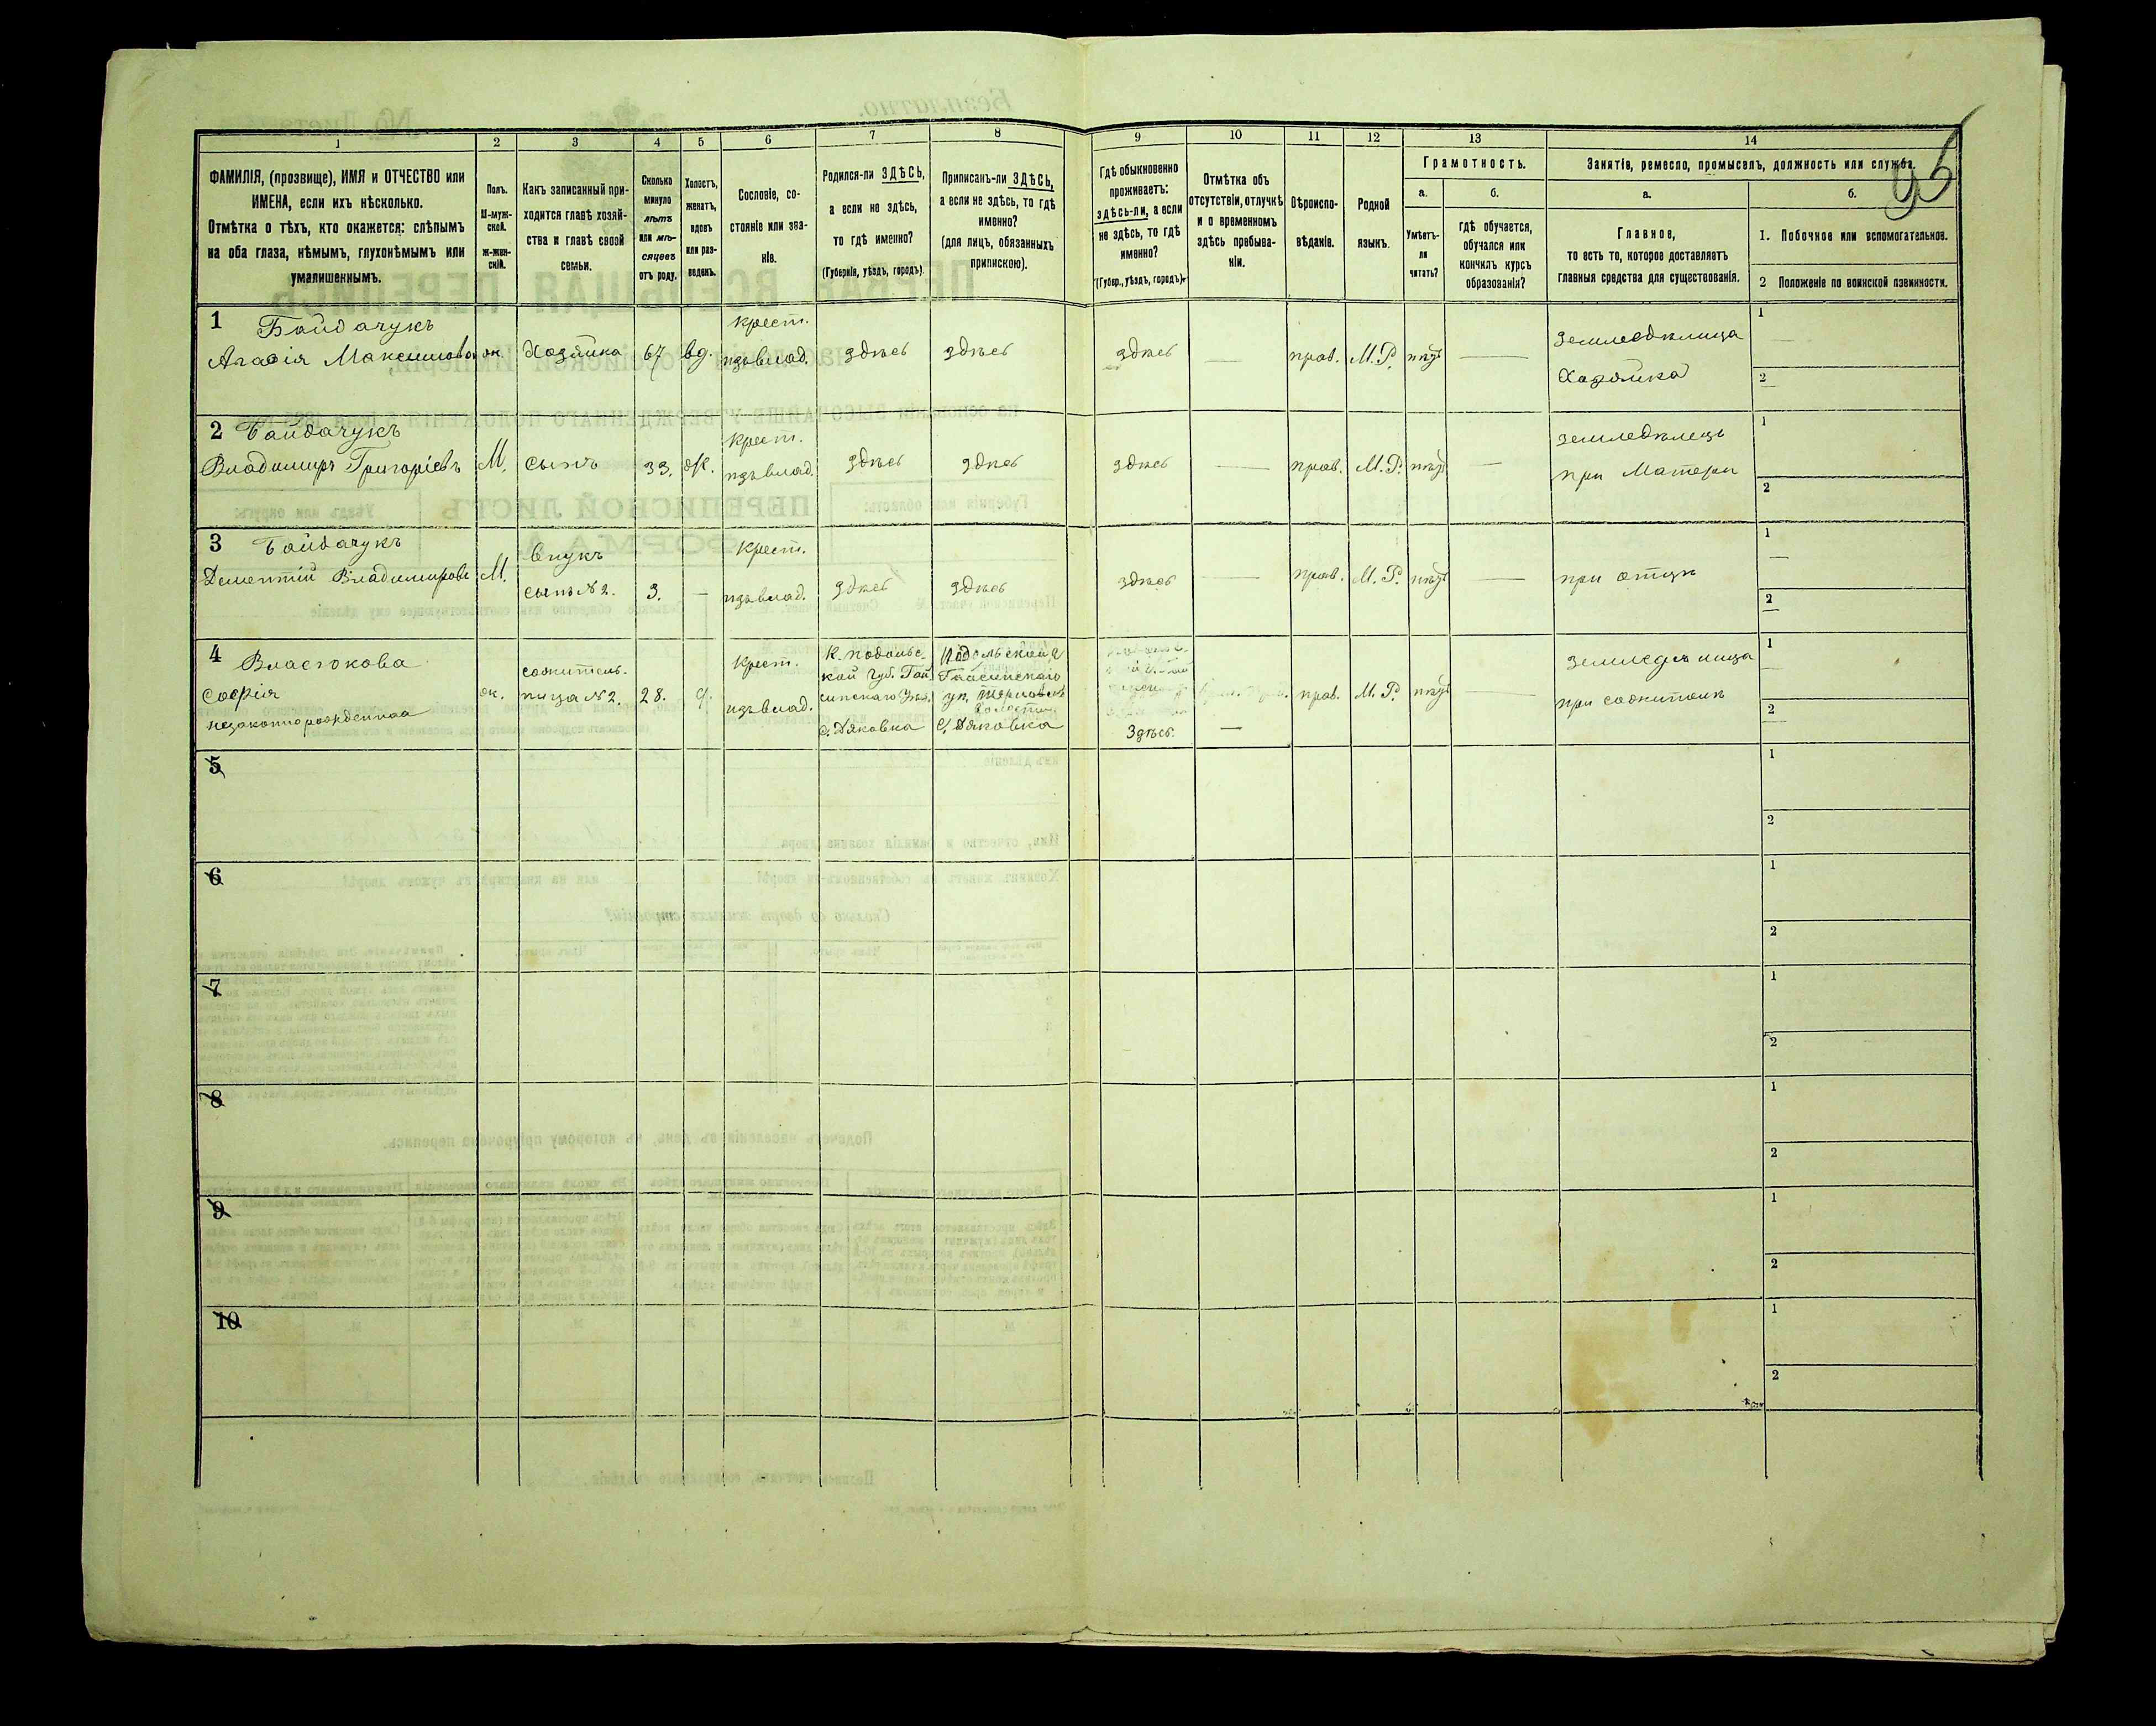 1 2 3 4 5 6 7 8 9 10 11 12 13 14
ФАМИЛІЯ, (прозвище), ИМЯ и ОТЧЕСТВО или
ИМЕНА, если ихъ нѣсколько.
Отмѣтка о тѣхъ, кто окажется: слѣпымъ
на оба глаза, нѣмымъ, глухонѣмымъ или
умалишеннымъ.
Полъ.
М-муж-
ской.
ж-жен-
скій.
Какъ записанный при-
ходится главѣ хозяй-
ства и главѣ своей
семьи.
Сколько
минуло
лѣтъ
или мѣ-
сяцевъ
отъ роду.
Холостъ,
женатъ,
вдовъ
или раз-
веденъ.
Сословіе, со-
стояніе или зва-
ніе.
Родился-ли ЗДѢСЬ,
а если не здѣсь,
то гдѣ именно?
(Губернія, уѣздъ, городъ).
Приписанъ-ли ЗДѢСЬ,
а если не здѣсь, то гдѣ
именно?
(для лицъ, обязанныхъ
припискою).
Гдѣ обыкновенно
проживаетъ:
здѣсь-ли, а если
не здѣсь, то гдѣ
именно?
(Губер., уѣздъ, городъ).
Отмѣтка объ
отсутствіи, отлучкѣ
и о временномъ
здѣсь пребыва-
ніи.
Вѣроиспо-
вѣданіе.
Родной
языкъ.
Грамотность.
а.
Умѣетъ-
ли
читать?
б.
гдѣ обучается,
обучался или
кончилъ курсъ
образованія?
Занятіе, ремесло, промыселъ, должность или служба.
а.
Главное,
то есть то, которое доставляетъ
главныя средства для существованія.
б.
1. Побочное или вспомогательное.
2 Положеніе по воинской повинности.
1 Байдачукъ
Агафія Максимова
ж.
Хозяйка
67
вд.
крест.
изъ влад.
здѣсь
здѣсь
здѣсь
—
прав.
М.Р.
нѣтъ
—
земледѣлица
Хозяйка
1
—
2
2 Байдачукъ
Владимиръ Григоріевъ
М.
сынъ
33.
Ж.
крест.
изъ влад.
здѣсь
здѣсь
здѣсь
—
прав.
М.Р.
нѣтъ
—
земледѣлецъ
при Матери
1
2
3 Байдачукъ
Дементій Владимировъ
М.
внукъ
сынъ №2.
3.
—
крест.
изъ влад.
здѣсь
здѣсь
здѣсь
—
прав.
М.Р.
нѣтъ
—
при отцѣ
1
—
2
4 Власюкова
Софія
незаконнорожденная
ж.
сожитель-
ница №2.
28.
крест.
изъ влад.
подольс
кой губ. Гай
синскаго
с. Дяковка
Подольской
Гайсинскаго
с. Дяковка
Здѣсь.
—
прав.
М.Р.
нѣтъ
—
земледѣлица
при сожителѣ
1
—
2
5
1
2
6
1
2
7
1
2
8
1
2
9
1
2
10
1
2